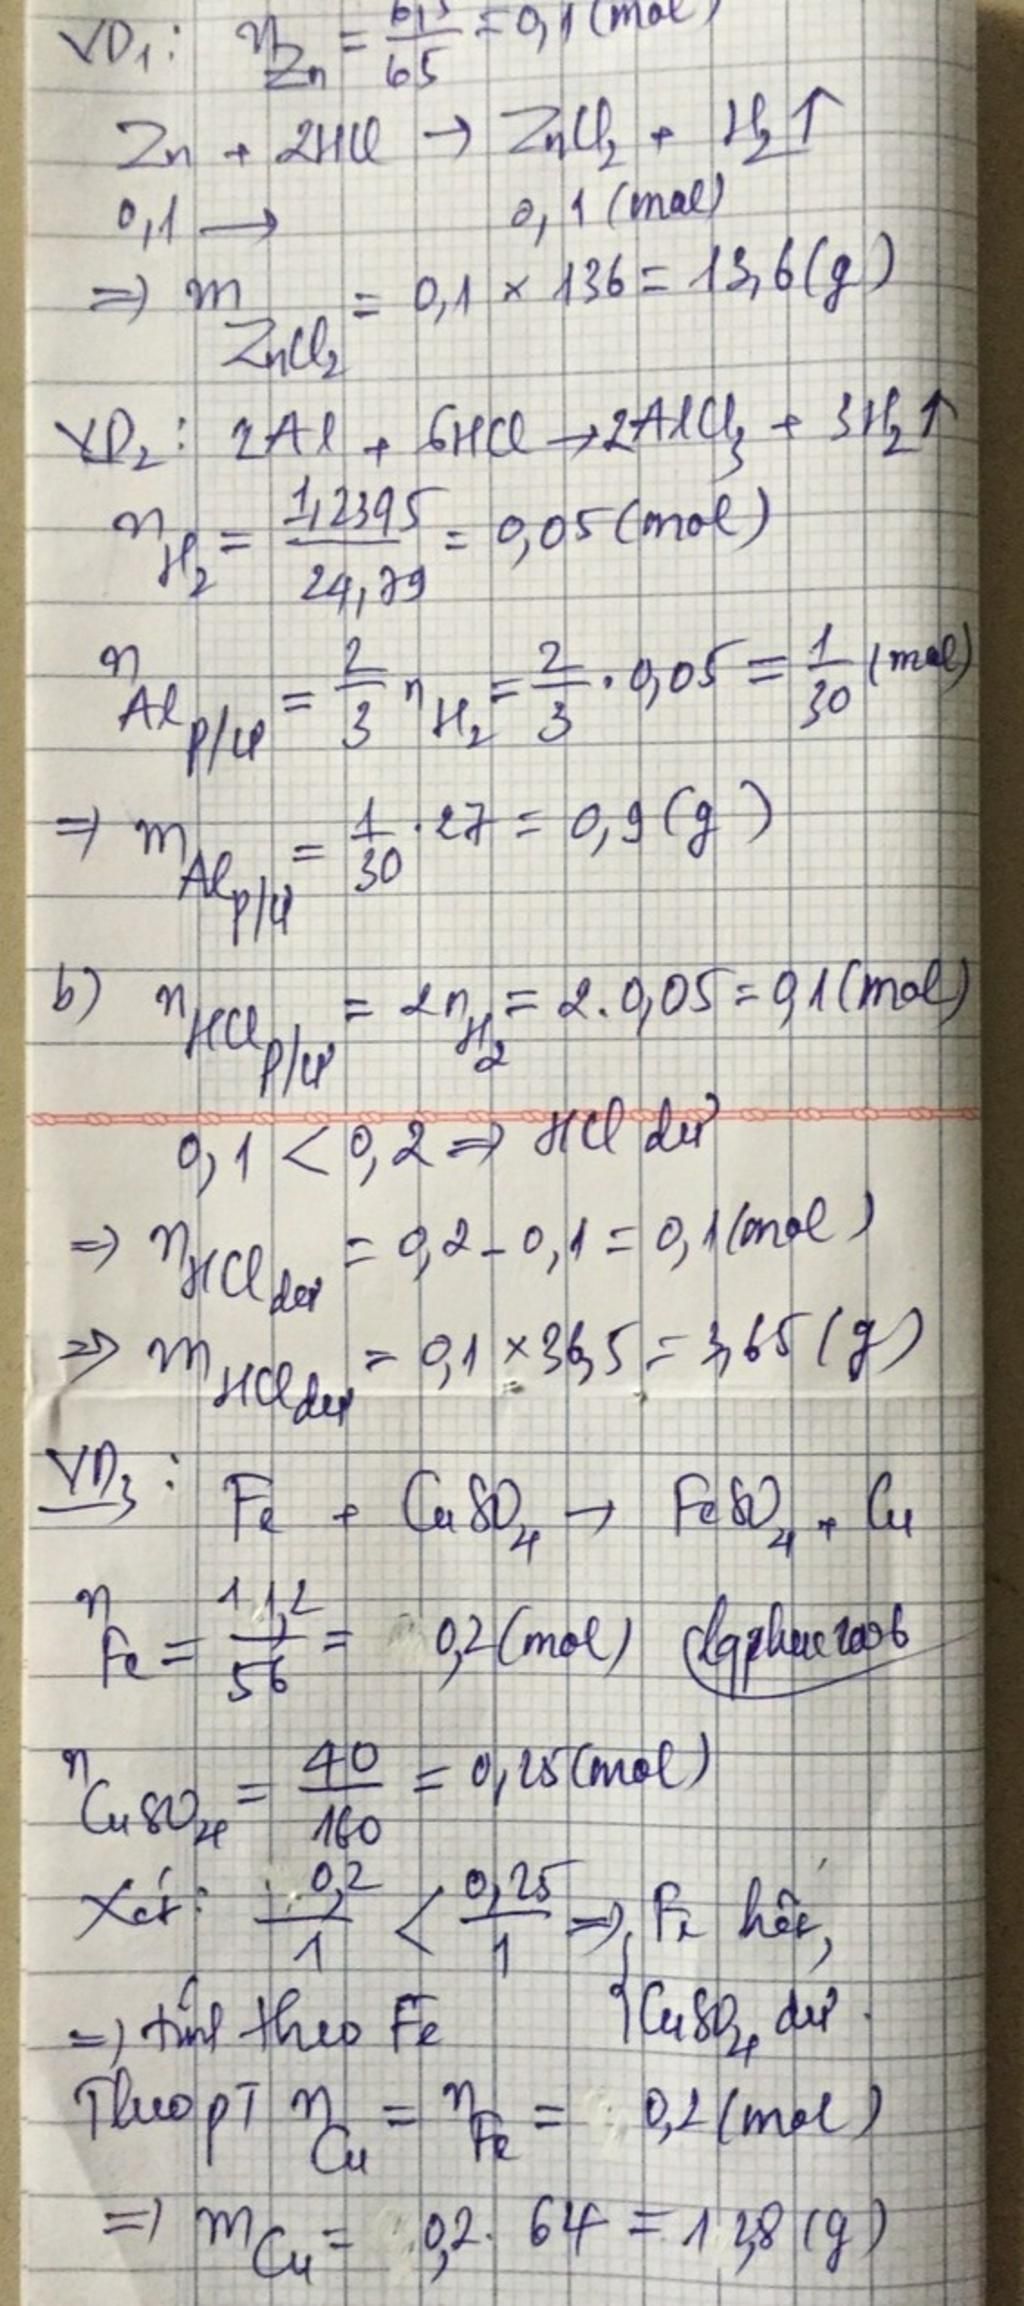 VD1: nZn = 6,5/65 = 0,1 (mol)
Zn + 2HCl → ZnCl2 + H2↑
0,1 → 0,1 (mol)
=> mZnCl2 = 0,1 × 136 = 13,6 (g)
VD2: 2Al + 6HCl → 2AlCl3 + 3H2↑
nH2 = 1,2395/24,79 = 0,05 (mol)
nAl p/ư = 2/3 nH2 = 2/3 . 0,05 = 1/30 (mol)
=> mAl p/ư = 1/30 . 27 = 0,9 (g)
b) nHCl p/ư = 2nH2 = 2. 0,05 = 0,1 (mol)
0,1 < 0,2 => HCl dư
=> nHCl dư = 0,2 - 0,1 = 0,1 (mol)
=> mHCl dư = 0,1 × 36,5 = 3,65 (g)
VD3: Fe + CuSO4 → FeSO4 + Cu
nFe = 11,2/56 = 0,2 (mol)
nCuSO4 = 40/160 = 0,25 (mol)
Xét: 0,2/1 < 0,25/1 => { Fe hết,
=> tính theo Fe CuSO4 dư.
Theo pT nCu = nFe = 0,2 (mol)
=> mCu = 0,2. 64 = 12,8 (g)